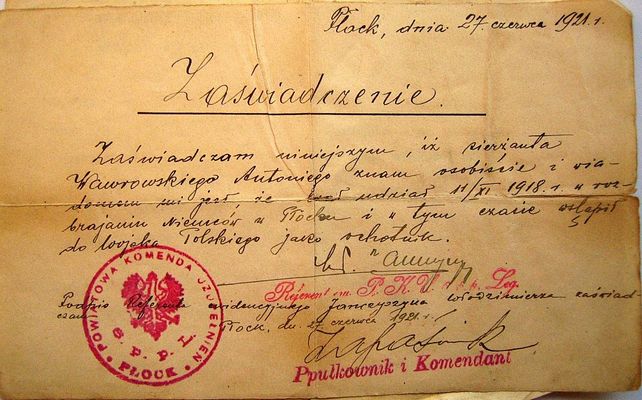 Płock, dnia 27 czerwca 1921 r.
Zaświadczenie.
Zaświadczam niniejszym, iż sierżanta
Wawrowskiego Antoniego znam osobiście i wia-
domem mi jest, że brał udział 11/XI 1918 r. w roz-
brajaniu Niemców w Płocku i w tym czasie wstąpił
do Wojska Polskiego jako ochotnik.
Referent P.K.U. Leg.
Podpis Referenta ewidencyjnego Janczyszyna Włodzimierza zaświad-
czam
Płock, dn. 27 czerwca 1921 r.
Ppułkownik i Komendant
POWIATOWA KOMENDA UZUPEŁNIEŃ
6. P. P. L.
PŁOCK